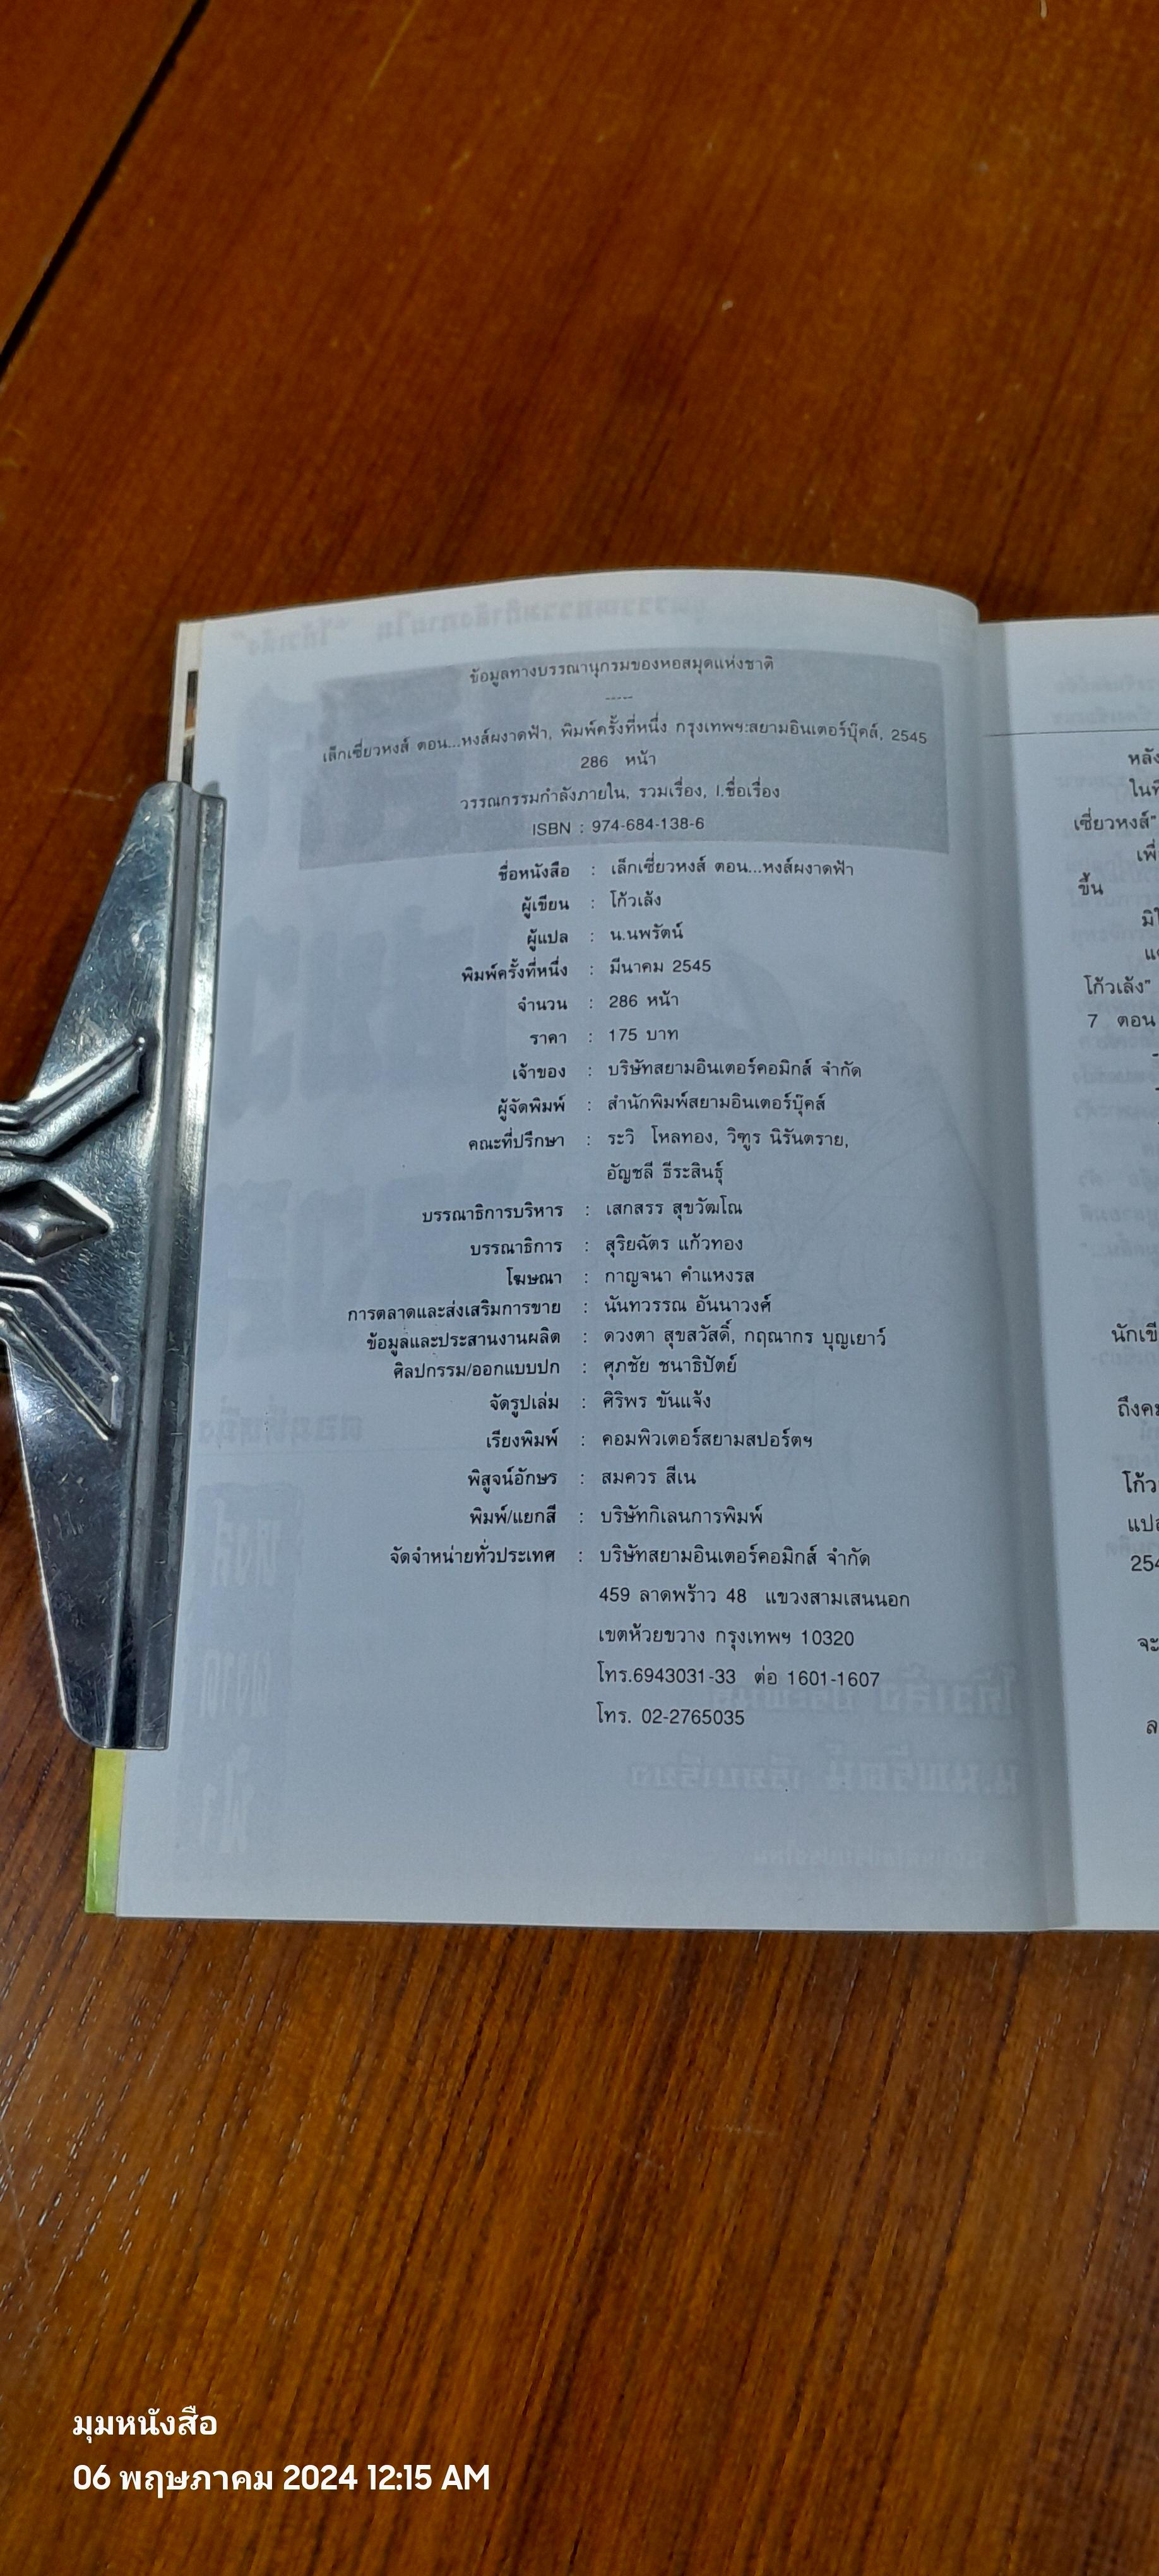 ข้อมูลทางบรรณานุกรมของหอสมุดแห่งชาติ
-----
เล็กเซี่ยวหงส์ ตอน...หงส์ผงาดฟ้า, พิมพ์ครั้งที่หนึ่ง กรุงเทพฯ:สยามอินเตอร์บุ๊คส์, 2545
286 หน้า
วรรณกรรมกำลังภายใน, รวมเรื่อง, I.ชื่อเรื่อง
ISBN : 974-684-138-6
ชื่อหนังสือ : เล็กเซี่ยวหงส์ ตอน...หงส์ผงาดฟ้า
ผู้เขียน : โก้วเล้ง
ผู้แปล : น.นพรัตน์
พิมพ์ครั้งที่หนึ่ง : มีนาคม 2545
จำนวน : 286 หน้า
ราคา : 175 บาท
เจ้าของ : บริษัทสยามอินเตอร์คอมิกส์ จำกัด
ผู้จัดพิมพ์ : สำนักพิมพ์สยามอินเตอร์บุ๊คส์
คณะที่ปรึกษา : ระวิ โหลทอง, วิฑูร นิรันตราย,
อัญชลี ธีระสินธุ์
บรรณาธิการบริหาร : เสกสรร สุขวัฒโณ
บรรณาธิการ : สุริยฉัตร แก้วทอง
โฆษณา : กาญจนา คำแหงรส
การตลาดและส่งเสริมการขาย : นันทวรรณ อันนาวงศ์
ข้อมูลและประสานงานผลิต : ดวงตา สุขสวัสดิ์, กฤณากร บุญเยาว์
ศิลปกรรม/ออกแบบปก : ศุภชัย ชนาธิปัตย์
จัดรูปเล่ม : ศิริพร ขันแจ้ง
เรียงพิมพ์ : คอมพิวเตอร์สยามสปอร์ตฯ
พิสูจน์อักษร : สมควร สีเน
พิมพ์/แยกสี : บริษัทกิเลนการพิมพ์
จัดจำหน่ายทั่วประเทศ : บริษัทสยามอินเตอร์คอมิกส์ จำกัด
459 ลาดพร้าว 48 แขวงสามเสนนอก
เขตห้วยขวาง กรุงเทพฯ 10320
โทร.6943031-33 ต่อ 1601-1607
โทร. 02-2765035
เซี่ยวหงส์"
ขึ้น
โก้วเล้ง"
7 ตอน
มุมหนังสือ
06 พฤษภาคม 2024 12:15 AM